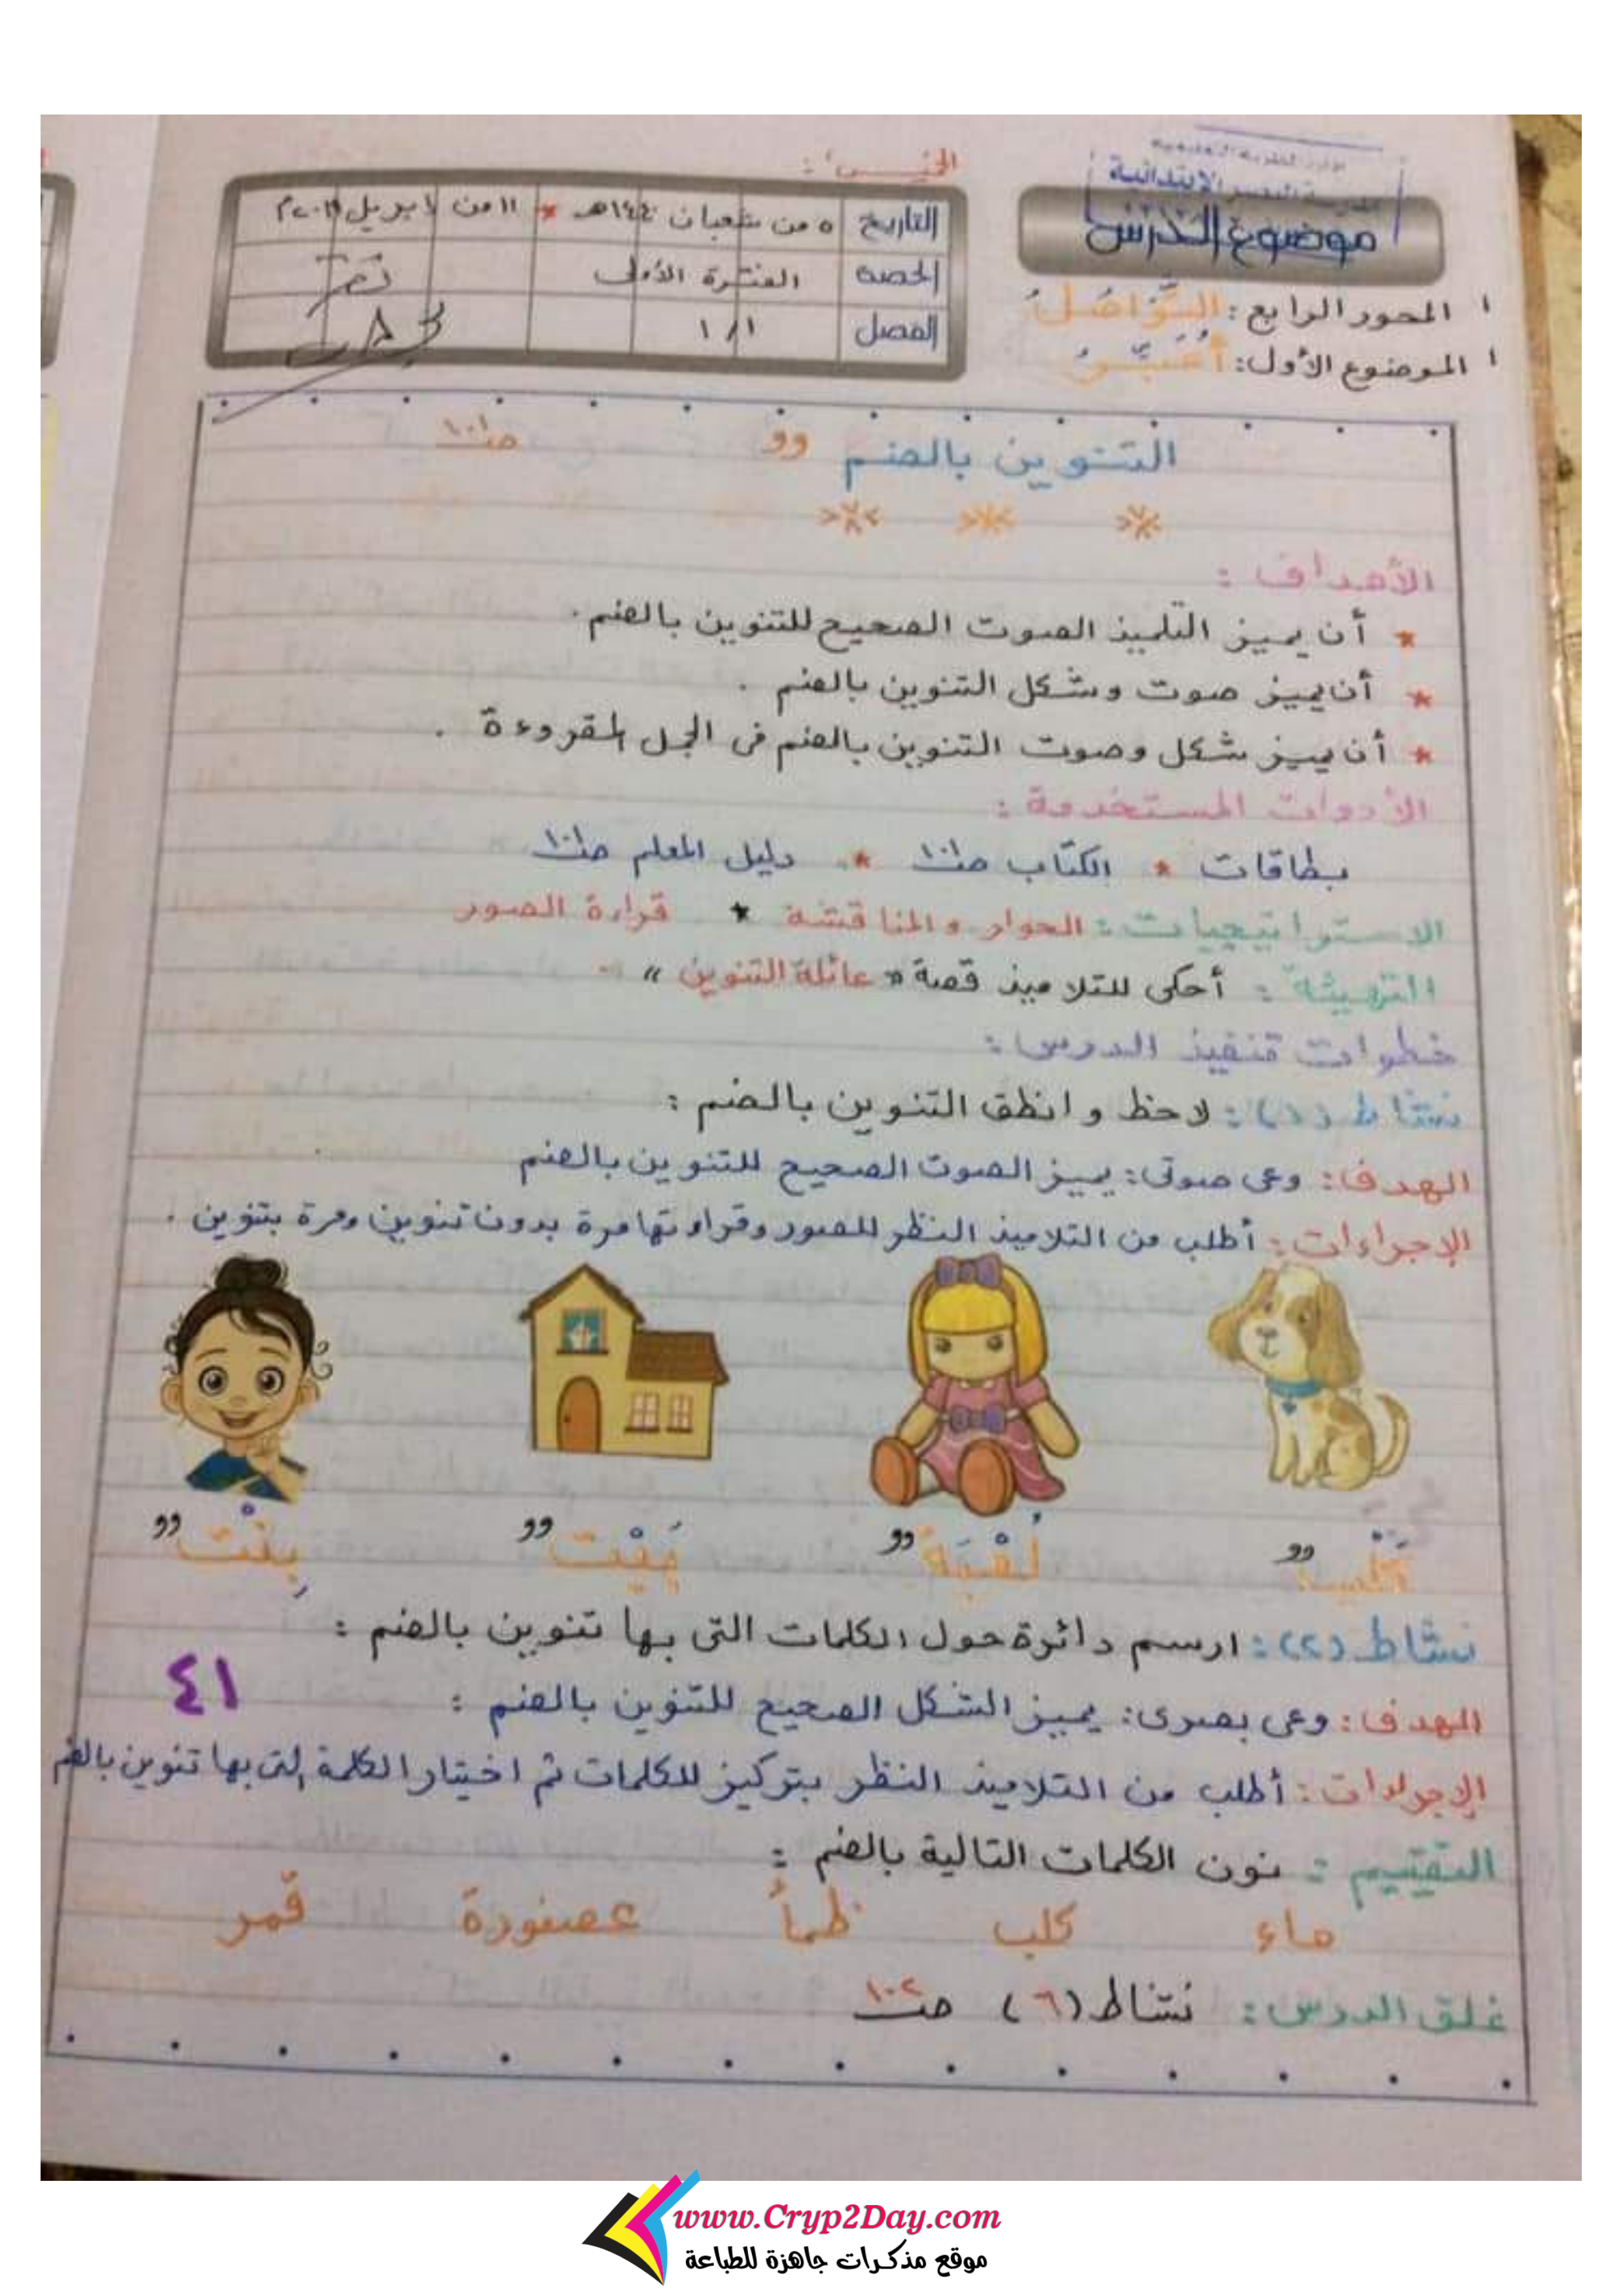 الخميس:
موضوع الدرس
التاريخ ٥ من شعبان ١٤٤٠هـ * ١١ من ابريل ٢٠١٩م
الحصة الفترة الأولى
الفصل ١/١
المحور الرابع: التَّوَاصُلُ
الموضوع الأول: أُعَبِّرُ
التنوين بالضم ـٌ صـ١٠١
الأهداف:
* أن يميز التلميذ الصوت الصحيح للتنوين بالضم.
* أن يميز صوت وشكل التنوين بالضم.
* أن يميز شكل وصوت التنوين بالضم فى الجمل المقروءة.
الأدوات المستخدمة:
بطاقات * الكتاب صـ١٠١ * دليل المعلم
الاستراتيجيات: الحوار والمناقشة * قراءة الصور
التهيئة: أحكى للتلاميذ قصة « عائلة التنوين »
خطوات تنفيذ الدرس:
نشاط (١): لاحظ و انطق التنوين بالضم:
الهدف: وعى صوتى: يميز الصوت الصحيح للتنوين بالضم
الإجراءات: أطلب من التلاميذ النظر للصور وقراءتها مرة بدون تنوين ومرة بتنوين.
كَلْبٌ لُعْبَةٌ بَيْتٌ بِنْتٌ
نشاط (٢): ارسم دائرة حول الكلمات التى بها تنوين بالضم:
٤١
الهدف: وعى بصرى: يميز الشكل الصحيح للتنوين بالضم:
الإجراءات: أطلب من التلاميذ النظر بتركيز للكلمات ثم اختيار الكلمة التى بها تنوين بالضم
التقييم: نون الكلمات التالية بالضم:
ماء كلب ظمأ عصفورة قمر
غلق الدرس: نشاط (٦) صـ١٠٢
www.Cryp2Day.com
موقع مذكرات جاهزة للطباعة